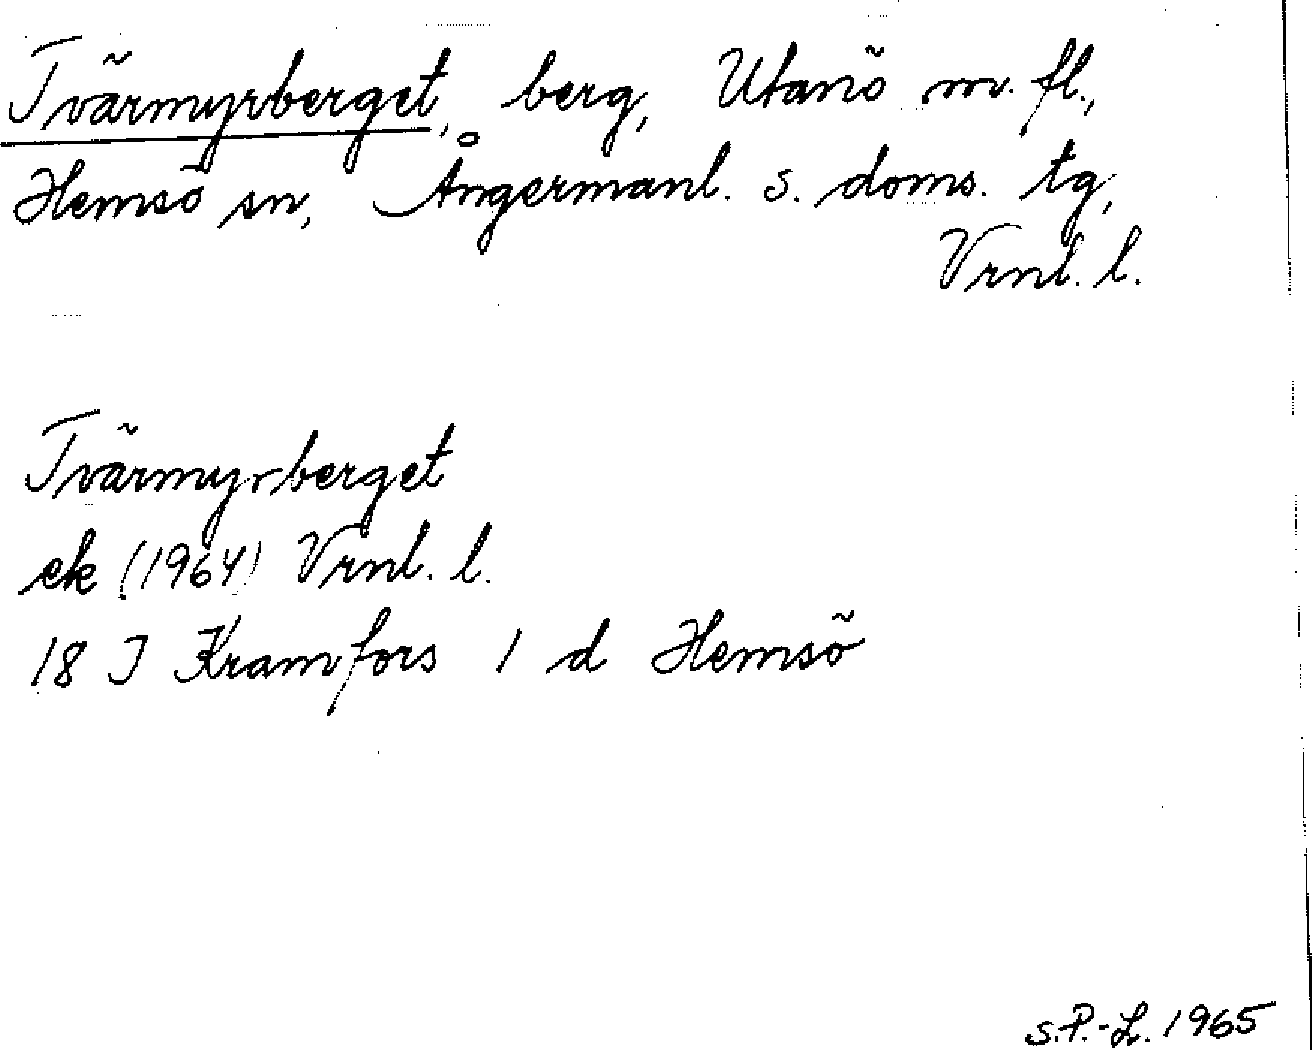 Tvärmyrberget, berg, Utanö m. fl.,
Hemsö sn, Ångermanl. s. doms. tg,
Vrnl. l.
Tvärmyrberget
ek (1964) Vrnl. l.
18 I Kramfors 1 d Hemsö
S.P.-L. 1965